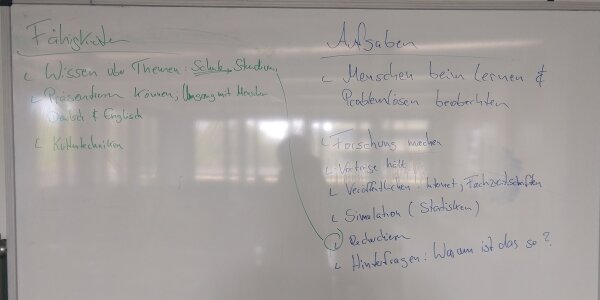 Fähigkeiten
Wissen über Themen: Schule, Studium
Präsentieren können, Umgang mit Menschen
Deutsch & Englisch
Kulturtechniken
Aufgaben
Menschen beim Lernen &
Problemlösen beobachten
Forschung machen
Vorträge hält
Veröffentlichen: Internet, Fachzeitschriften
Simulation (Statistiken)
Recherchieren
Hinterfragen: Warum ist das so?